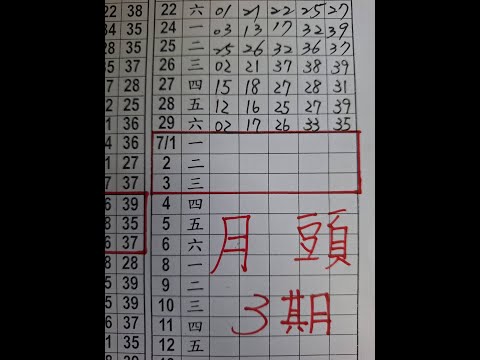 22 38 22 六 01 21 22 25 27
34 35 24 一 03 13 17 32 39
25 35 25 二 25 26 32 36 37
35 37 26 三 02 21 37 38 39
7 28 27 四 15 18 27 28 31
28 35 28 五 12 16 25 27 39
1 36 29 六 02 17 26 33 35
4 36 7/1 一
1 27 2 二
7 37 3 三
6 39 4 四
8 35 5 五
6 37 6 六
8 28 8 一
26 39 9 二
35 10 三
26 11 四
35 12 五
月 頭
3期